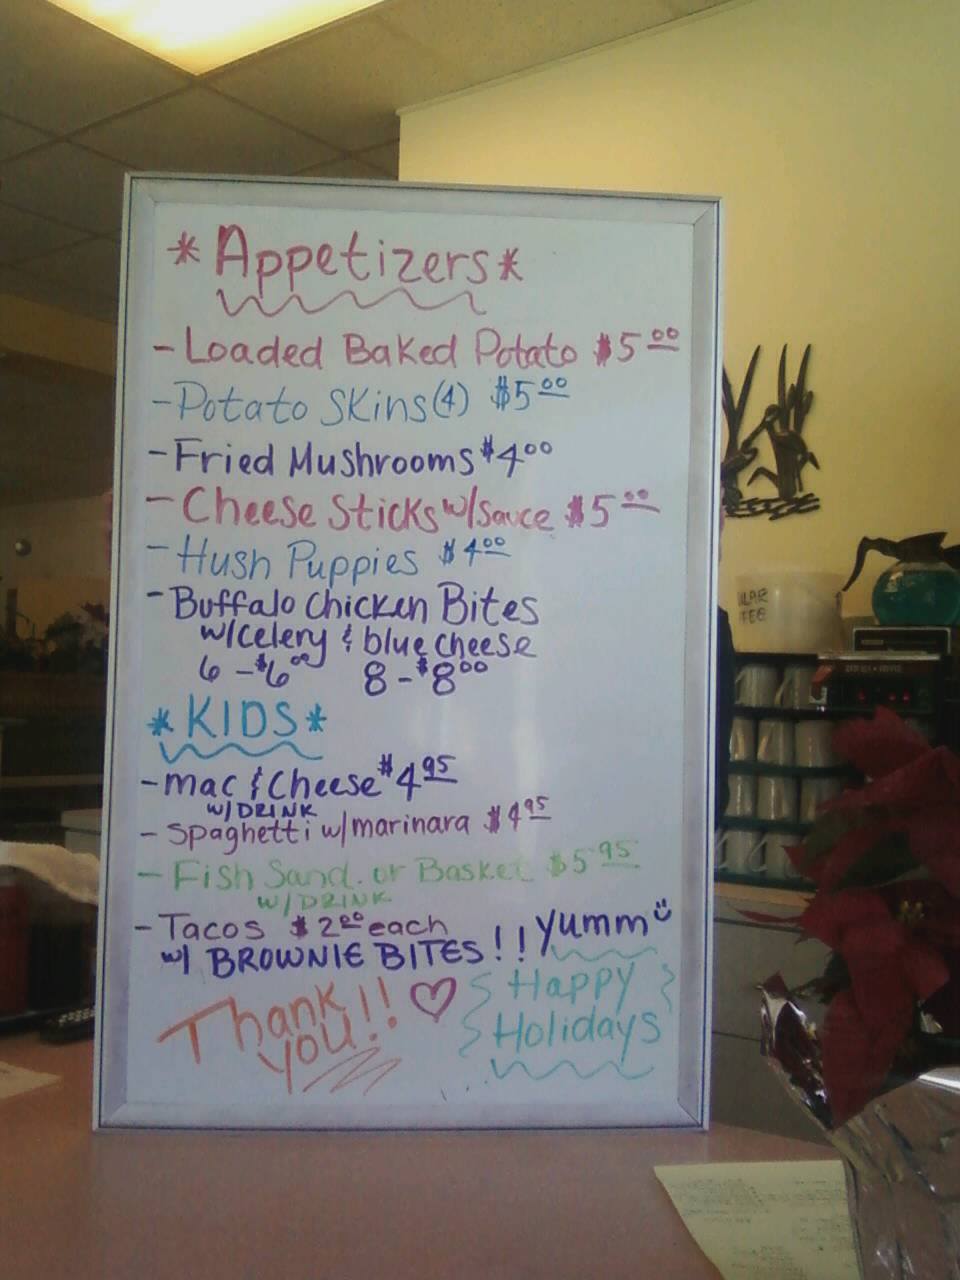 *Appetizers*
- Loaded Baked Potato $5.00
- Potato Skins(4) $5.00
- Fried Mushrooms $4.00
- Cheese Sticks w/sauce $5.00
- Hush Puppies $4.00
- Buffalo Chicken Bites
w/celery & blue cheese
6 - $6.00 8 - $8.00
*KIDS*
- Mac & Cheese $4.95
w/DRINK
- Spaghetti w/marinara $4.95
- Fish Sand. or Basket $5.95
w/DRINK
- Tacos $2.00 each
w/ BROWNIE BITES!! Yumm
Thank
you!!
Happy
Holidays